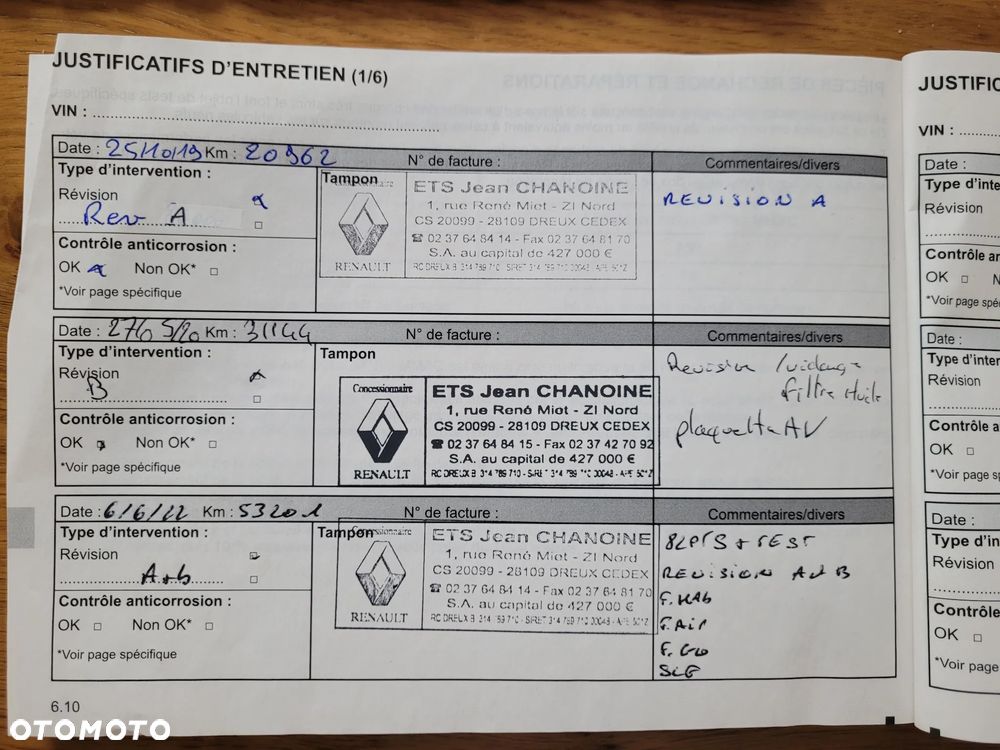 JUSTIFICATIFS D'ENTRETIEN (1/6)
VIN :
Date : 25/10/19 Km : 20962 N° de facture : Commentaires/divers
Type d'intervention :
Révision
Rev A
Contrôle anticorrosion :
OK Non OK*
*Voir page spécifique
Tampon
ETS Jean CHANOINE
1, rue René Miot - ZI Nord
CS 20099 - 28109 DREUX CEDEX
☎ 02 37 64 84 14 - Fax 02 37 64 81 70
S.A. au capital de 427 000 €
RENAULT
REVISION A
Date : Km : 31144 N° de facture : Commentaires/divers
Type d'intervention :
Révision
B
Contrôle anticorrosion :
OK Non OK*
*Voir page spécifique
Tampon
Concessionnaire
ETS Jean CHANOINE
1, rue René Miot - ZI Nord
CS 20099 - 28109 DREUX CEDEX
☎ 02 37 64 84 15 - Fax 02 37 42 70 92
S.A. au capital de 427 000 €
RENAULT
Revision / vidange
Filtre Huile
plaquette AV
Date : 6/6/22 Km : 53201 N° de facture : Commentaires/divers
Type d'intervention :
Révision
A+b
Contrôle anticorrosion :
OK Non OK*
*Voir page spécifique
Tampon
Concessionnaire
ETS Jean CHANOINE
1, rue René Miot - ZI Nord
CS 20099 - 28109 DREUX CEDEX
☎ 02 37 64 84 14 - Fax 02 37 64 81 70
S.A. au capital de 427 000 €
RENAULT
F. HAb
F. AiR
6.10
JUSTIFIC
VIN :
Date :
Type d'inter
Révision
Contrôle an
OK
*Voir page spé
Date :
Type d'inter
Révision
Contrôle a
OK
*Voir page s
Date :
Type d'in
Révision
Contrôle
OK
*Voir page
OTOMOTO